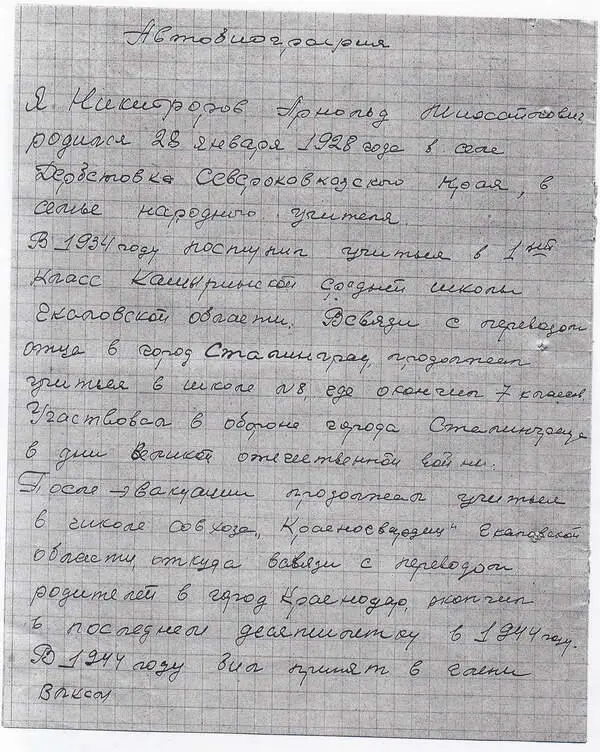 Автобиография
Я Никифоров Арнольд
родился 28 января 1928 года в селе
Дербетовка Северокавказского Края, в
семье народного учителя
В 1934 году поступил учиться в 1ый
класс Кашыринской средней школы
Чкаловской области. Всвязи с переводом
отца в город Сталинград, продолжал
учиться в школе №8, где окончил 7 классов
Участвовал в обороне города Сталинграда
в дни Великой отечественной войни.
После эвакуации продолжал учиться
в школе совхоза „Красногвардеец" Чкаловской
области, откуда всвязи с переводом
родителей в город Краснодар, окончил
в последнем десятилетку в 1944 году.
В 1944 году бил принят в члени
ВЛКСМ